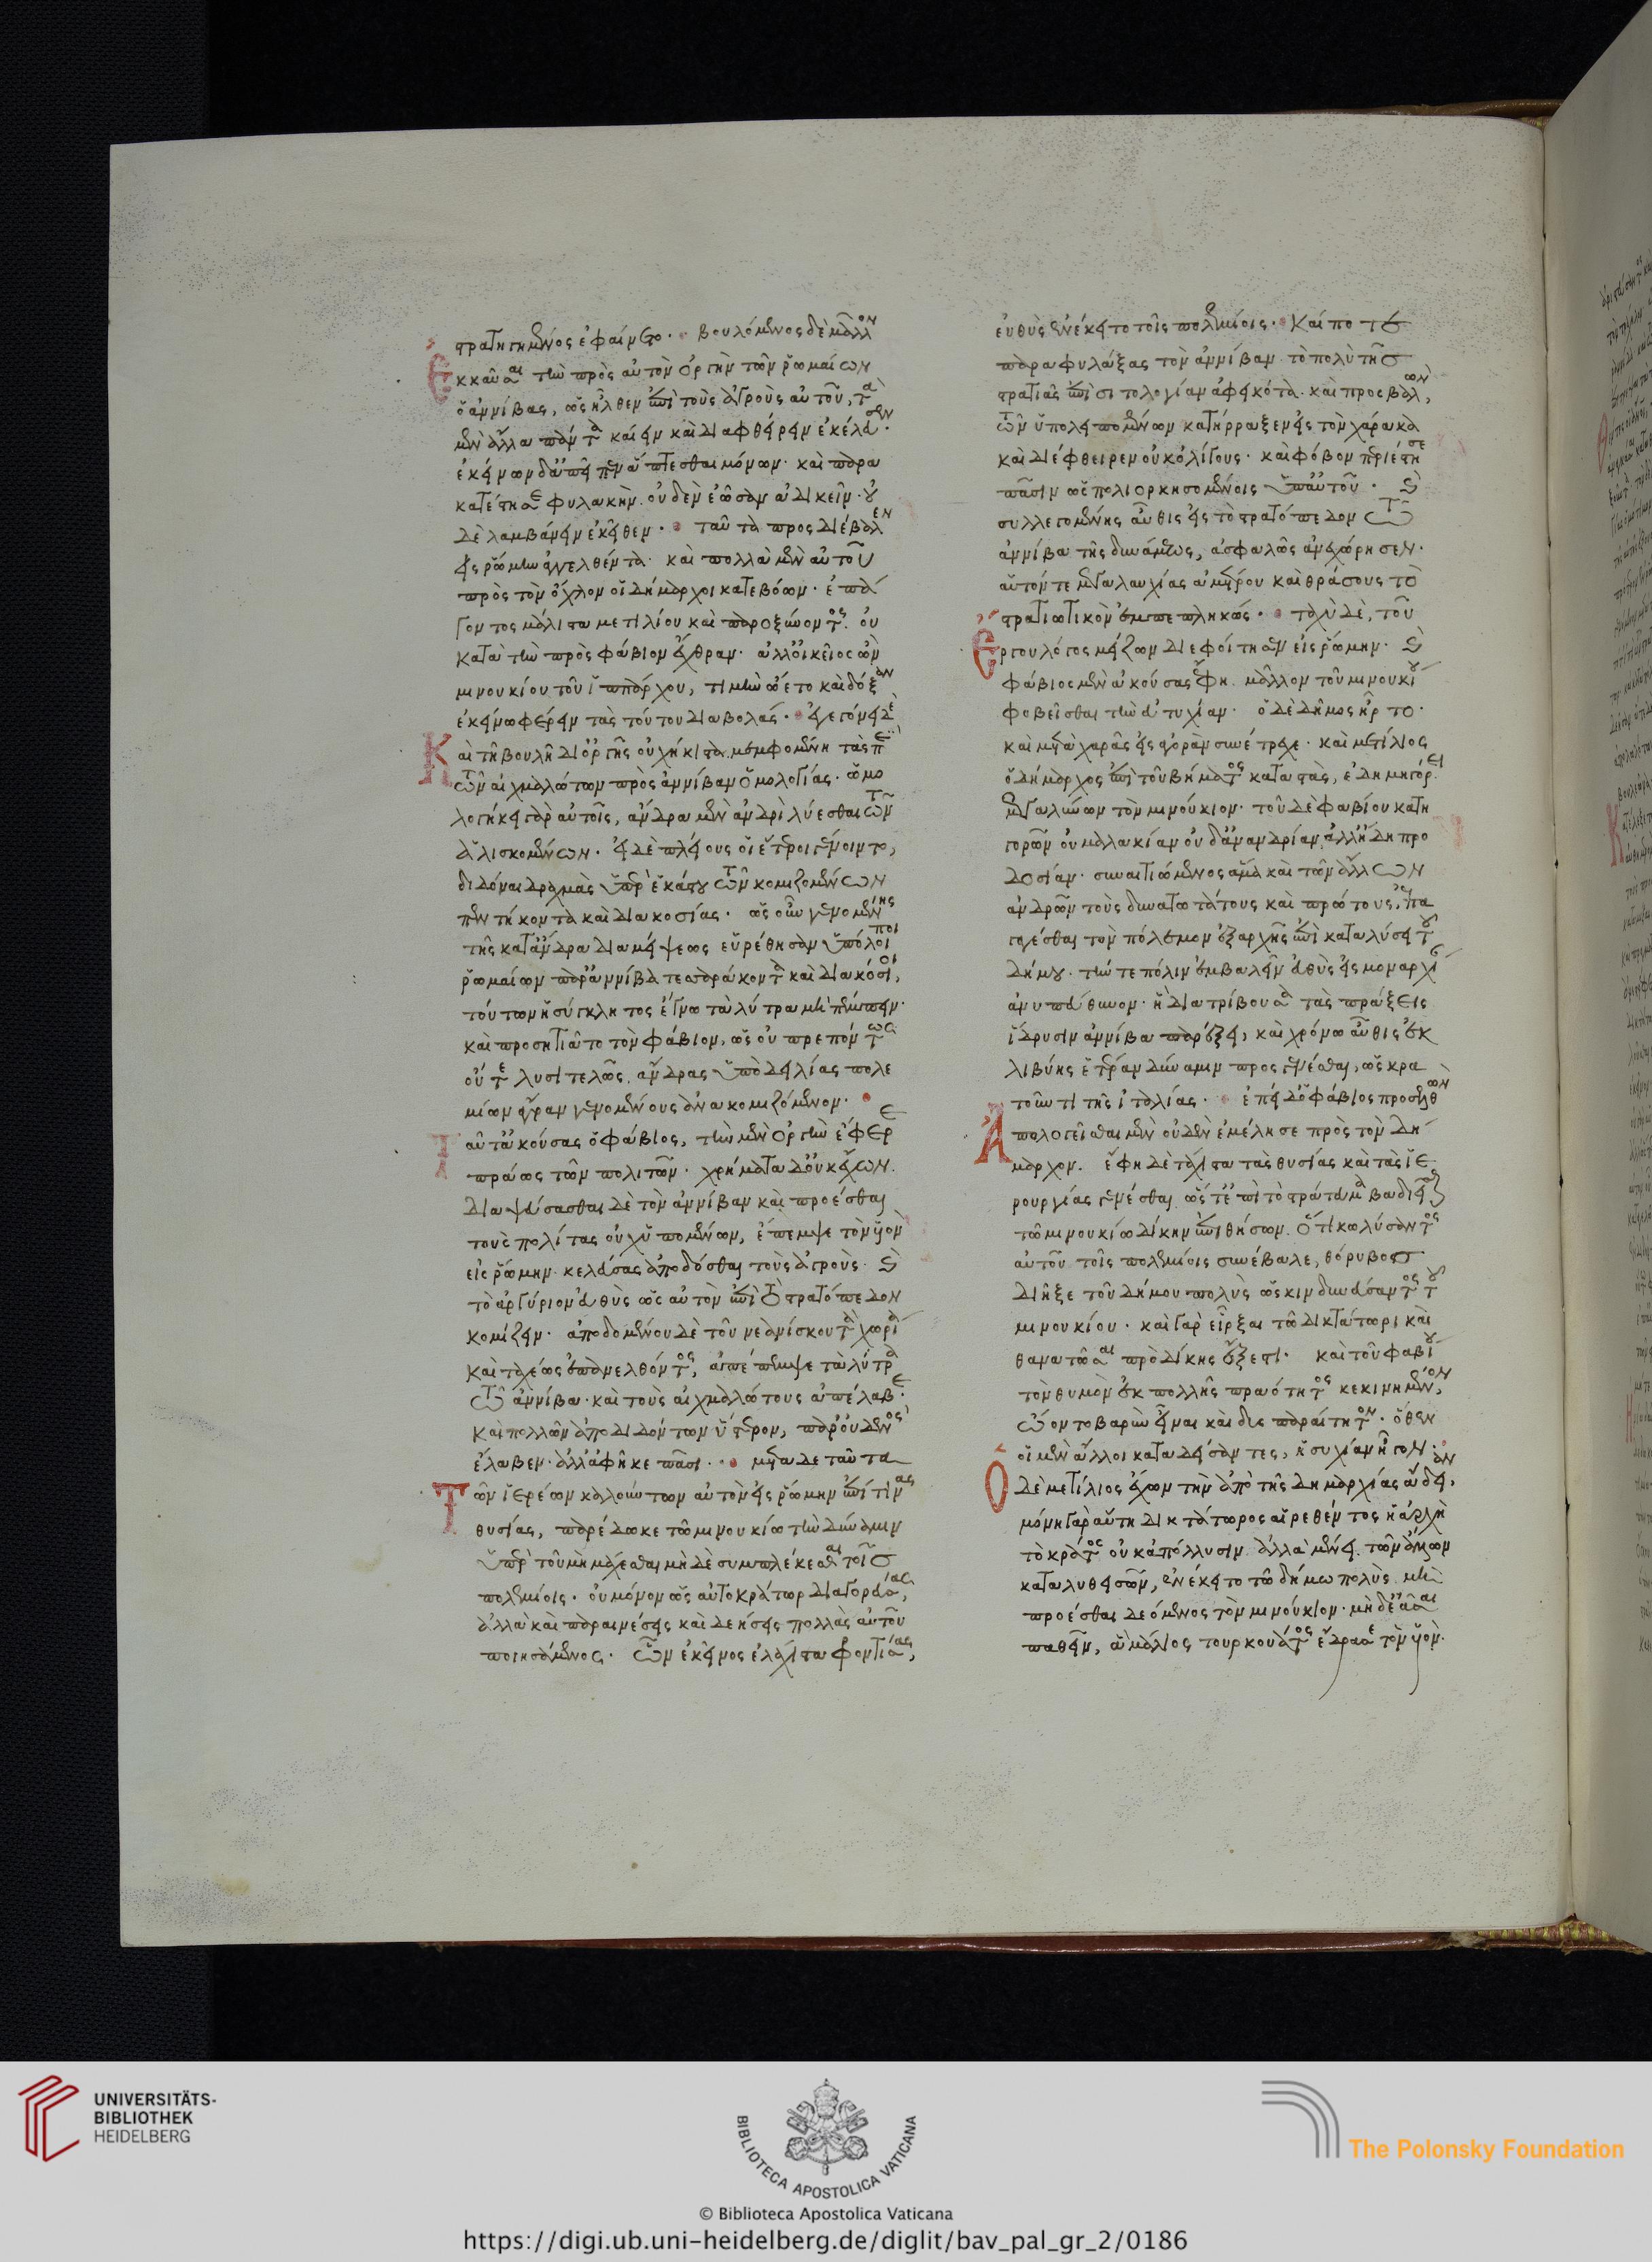 στρατηγημένος ἐφαίνετο. βουλόμενος δὲ μᾶλλον
ἐκκαῦσαι τὴν πρὸς αὐτὸν ὀργὴν τῶν ῥωμαίων
ὁ ἀννίβας, ὡς ἦλθεν ἐπὶ τοὺς ἀγροὺς αὐτοῦ, τὰ
μὲν ἄλλα πάντα καίειν καὶ διαφθείρειν ἐκέλευσεν.
ἐκείνων δ' ἀπεῖπεν ἅπτεσθαι μόνων. καὶ παρα
κατέστησε φυλακὴν οὐδὲν ἐῶσαν ἀδικεῖν. οὐ
δὲ λαμβάνειν ἐκεῖθεν. ταῦτα προσδιέβαλεν
εἰς ῥώμην ἀγγελθέντα. καὶ πολλὰ μὲν αὐτοῦ
πρὸς τὸν ὄχλον οἱ δήμαρχοι κατεβόων. ἐπά
γοντος μάλιστα μετιλίου καὶ παροξύνοντος. οὐ
κατὰ τὴν πρὸς φάβιον ἔχθραν. ἀλλ' οἰκεῖος ὢν
μινουκίου τοῦ ἱππάρχου, τιμὴν ᾤετο καὶ δόξαν
ἐκείνω φέρειν τὰς τούτου διαβολάς. ἐγεγόνει δὲ
καὶ τῆ βουλῆ δι' ὀργῆς οὐχ ἥκιστα μεμφομένη τὰς περὶ
τῶν αἰχμαλώτων πρὸς ἀννίβαν ὁμολογίας. ὡμο
λογήκει γὰρ αὐτοῖς, ἄνδρα μὲν ἀνδρὶ λύεσθαι τῶν
ἁλισκομένων. εἰ δὲ πλείους οἱ ἕτεροι γένοιντο,
διδόναι δραχμὰς ὑπὲρ ἑκάστου τῶν κομιζομένων
πεντήκοντα καὶ διακοσίας. ὡς οὖν γενομένης
τῆς κατ' ἄνδρα διαμείψεως εὑρέθησαν ὑπόλοιποι
ῥωμαίων παρ' ἀννίβα τεσσαράκοντα καὶ διακόσιοι,
τούτων ἡ σύγκλητος ἔγνω τὰ λύτρα μὴ πέμπειν.
καὶ προσητιᾶτο τὸν φάβιον, ὡς οὐ πρεπόντως
οὔτε λυσιτελῶς ἄνδρας ὑπὸ δειλίας πολε
μίων ἄγραν γενομένους ἀνακομιζόμενον.
ταῦτ' ἀκούσας ὁ φάβιος, τὴν μὲν ὀργὴν ἔφερε
πράως τῶν πολιτῶν. χρήματα δ' οὐκ ἔχων.
διαψεύσασθαι δὲ τὸν ἀννίβαν καὶ προέσθαι
τοὺς πολίτας οὐχ ὑπομένων, ἔπεμψε τὸν υἱὸν
εἰς ῥώμην κελεύσας ἀποδόσθαι τοὺς ἀγρούς. καὶ
τὸ ἀργύριον εὐθὺς ὡς αὐτὸν ἐπὶ τὸ στρατόπεδον
κομίζειν. ἀποδομένου δὲ τοῦ νεανίσκου τὰ χωρία
καὶ ταχέως ἐπανελθόντος, ἀπέπεμψε τὰ λύτρα
τῶ ἀννίβα. καὶ τοὺς αἰχμαλώτους ἀπέλαβε.
καὶ πολλῶν ἀποδιδόντων ὕστερον, παρ' οὐδενὸς
ἔλαβεν. ἀλλ' ἀφῆκε πᾶσι. μετὰ δὲ ταῦτα
τῶν ἱερέων καλούντων αὐτὸν εἰς ῥώμην ἐπί τινας
θυσίας, παρέδωκε τῶ μινουκίω τὴν δύναμιν
ὑπὲρ τοῦ μὴ μάχεσθαι μὴ δὲ συμπλέκεσθαι τοῖς
πολεμίοις. οὐ μόνον ὡς αὐτοκράτωρ διαγορεύσας,
ἀλλὰ καὶ παραινέσεις καὶ δεήσεις πολλὰς αὐτοῦ
ποιησάμενος. ὧν ἐκεῖνος ἐλάχιστα φροντίσας,
εὐθὺς ἐνέκειτο τοῖς πολεμίοις. καί ποτε
παραφυλάξας τὸν ἀννίβαν τὸ πολὺ τῆς
στρατιᾶς ἐπὶ σιτολογίαν ἀφεικότα. καὶ προσβαλὼν,
τῶν ὑπολειπομένων κατήρραξεν εἰς τὸν χάρακα
καὶ διέφθειρεν οὐκ ὀλίγους. καὶ φόβον περιέστησε
πᾶσιν ὡς πολιορκησομένοις ὑπ' αὐτοῦ. καὶ
συλλεγομένης αὖθις εἰς τὸ στρατόπεδον τῶ
ἀννίβα τῆς δυνάμεως, ἀσφαλῶς ἀνεχώρησεν.
αὑτόν τε μεγαλαυχίας ἀμέτρου καὶ θράσους τὸ
στρατιωτικὸν ἐμπεπληκώς. ταχὺ δὲ, τοῦ
ἔργου λόγος μείζων διεφοίτησεν εἰς ῥώμην. καὶ
φάβιος μὲν ἀκούσας ἔφη. μᾶλλον τοῦ μινουκίου
φοβεῖσθαι τὴν εὐτυχίαν. ὁ δὲ δῆμος ᾖρτο.
καὶ μετὰ χαρᾶς εἰς ἀγορὰν συνέτρεχε. καὶ μετίλιος
ὁ δήμαρχος ἐπὶ τοῦ βήματος καταστὰς, ἐδημηγόρει
μεγαλύνων τὸν μινούκιον. τοῦ δὲ φαβίου κατη
γορῶν οὐ μαλακίαν οὐδ' ἀνανδρίαν, ἀλλ' ἤδη προ
δοσίαν. συναιτιώμενος ἅμα καὶ τῶν ἄλλων
ἀνδρῶν τοὺς δυνατωτάτους καὶ πρώτους, ἐπα
γαγέσθαι τὸν πόλεμον ἐξ ἀρχῆς ἐπὶ καταλύσει τοῦ
δήμου. τήν τε πόλιν ἐμβαλεῖν εὐθὺς εἰς μοναρχίαν
ἀνυπεύθυνον. ἣ διατρίβουσα τὰς πράξεις
ἵδρυσιν ἀννίβα παρέξει, καὶ χρόνω αὖθις ἐκ
λιβύης ἑτέραν δύναμιν προσγενέσθαι, ὡς κρα
τοῦντι τῆς ἰταλίας. ἐπεὶ δ' ὁ φάβιος προσελθὼν
ἀπολογεῖσθαι μὲν οὐδὲν ἐμέλησε πρὸς τὸν δή
μαρχον. ἔφη δὲ τάχιστα τὰς θυσίας καὶ τὰς ἱε
ρουργίας γενέσθαι ὥστ' ἐπὶ τὸ στράτευμα βαδιεῖσθαι
τῶ μινουκίω δίκην ἐπιθήσων. ὅτι κωλύσαντος
αὐτοῦ τοῖς πολεμίοις συνέβαλε, θόρυβος
διῆξε τοῦ δήμου πολὺς ὡς κινδυνεύσαντος τοῦ
μινουκίου. καὶ γὰρ εἷρξαι τῶ δικτάτωρι καὶ
θανατῶσαι πρὸ δίκης ἔξεστι. καὶ τοῦ φαβίου
τὸν θυμὸν ἐκ πολλῆς πραότητος κεκινημένον,
ᾤοντο βαρὺν εἶναι καὶ δυσπαραίτητον. ὅθεν
οἱ μὲν ἄλλοι καταδείσαντες, ἡσυχίαν ἦγον.
ὁ δὲ μετίλιος ἔχων τὴν ἀπὸ τῆς δημαρχίας ἄδειαν,
μόνη γὰρ αὕτη δικτάτωρος αἱρεθέντος ἡ ἀρχὴ
τὸ κράτος οὐκ ἀπόλλυσιν. ἀλλὰ μένει τῶν ἄλλων
καταλυθεισῶν, ἐνέκειτο τῶ δήμω πολὺς. μὴ
προέσθαι δεόμενος τὸν μινούκιον. μὴ δ' ἐᾶσαι
παθεῖν, ἃ μάλλιος τουρκουάτος ἔδρασε τὸν υἱὸν.
UNIVERSITÄTS-
BIBLIOTHEK
HEIDELBERG
BIBLIOTECA APOSTOLICA VATICANA
The Polonsky Foundation
© Biblioteca Apostolica Vaticana
https://digi.ub.uni-heidelberg.de/diglit/bav_pal_gr_2/0186